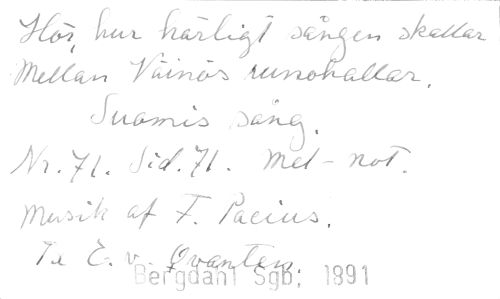 Hör, hur härligt sången skallar
Mellan Väinös runohallar.
Suomis sång.
Nr. 71. Sid. 71. Mel-not.
Musik af F. Pacius.
Te E. v. Qvanten
Bergdahl Sgb; 1891